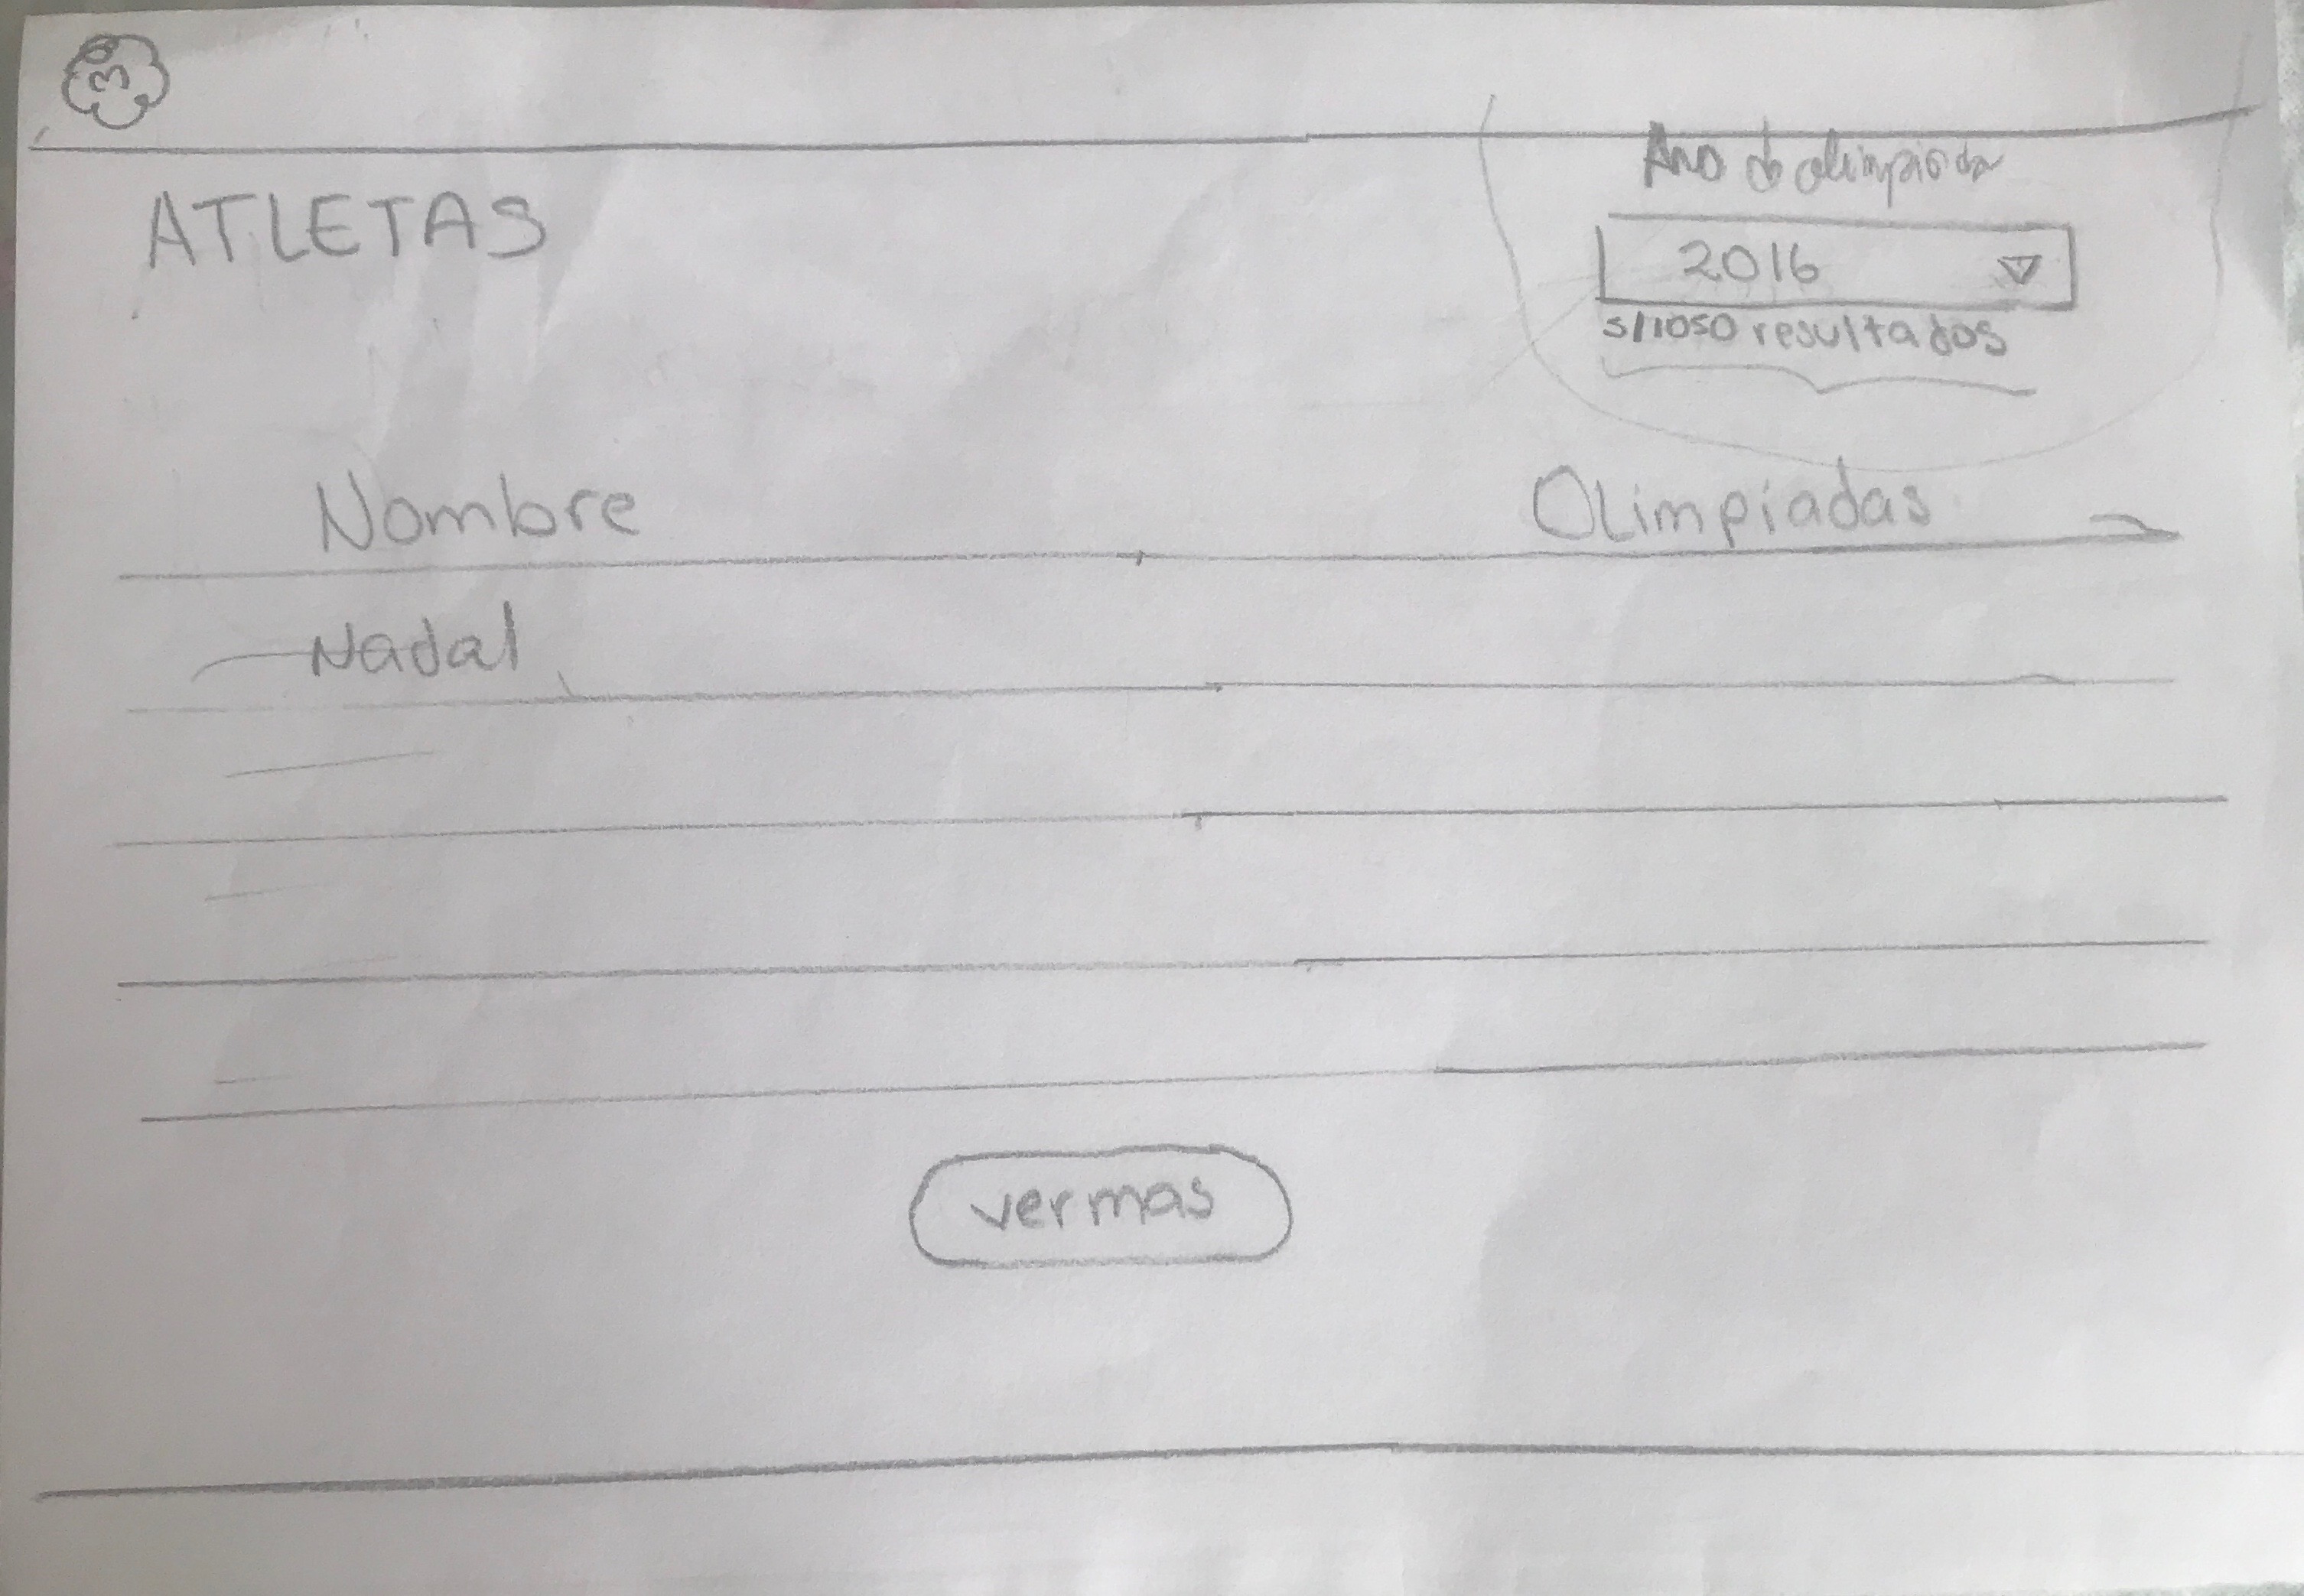 3
ATLETAS
Año de olimpiada
2016
5/1050 resultados
Nombre
Olimpiadas
Nadal
ver mas